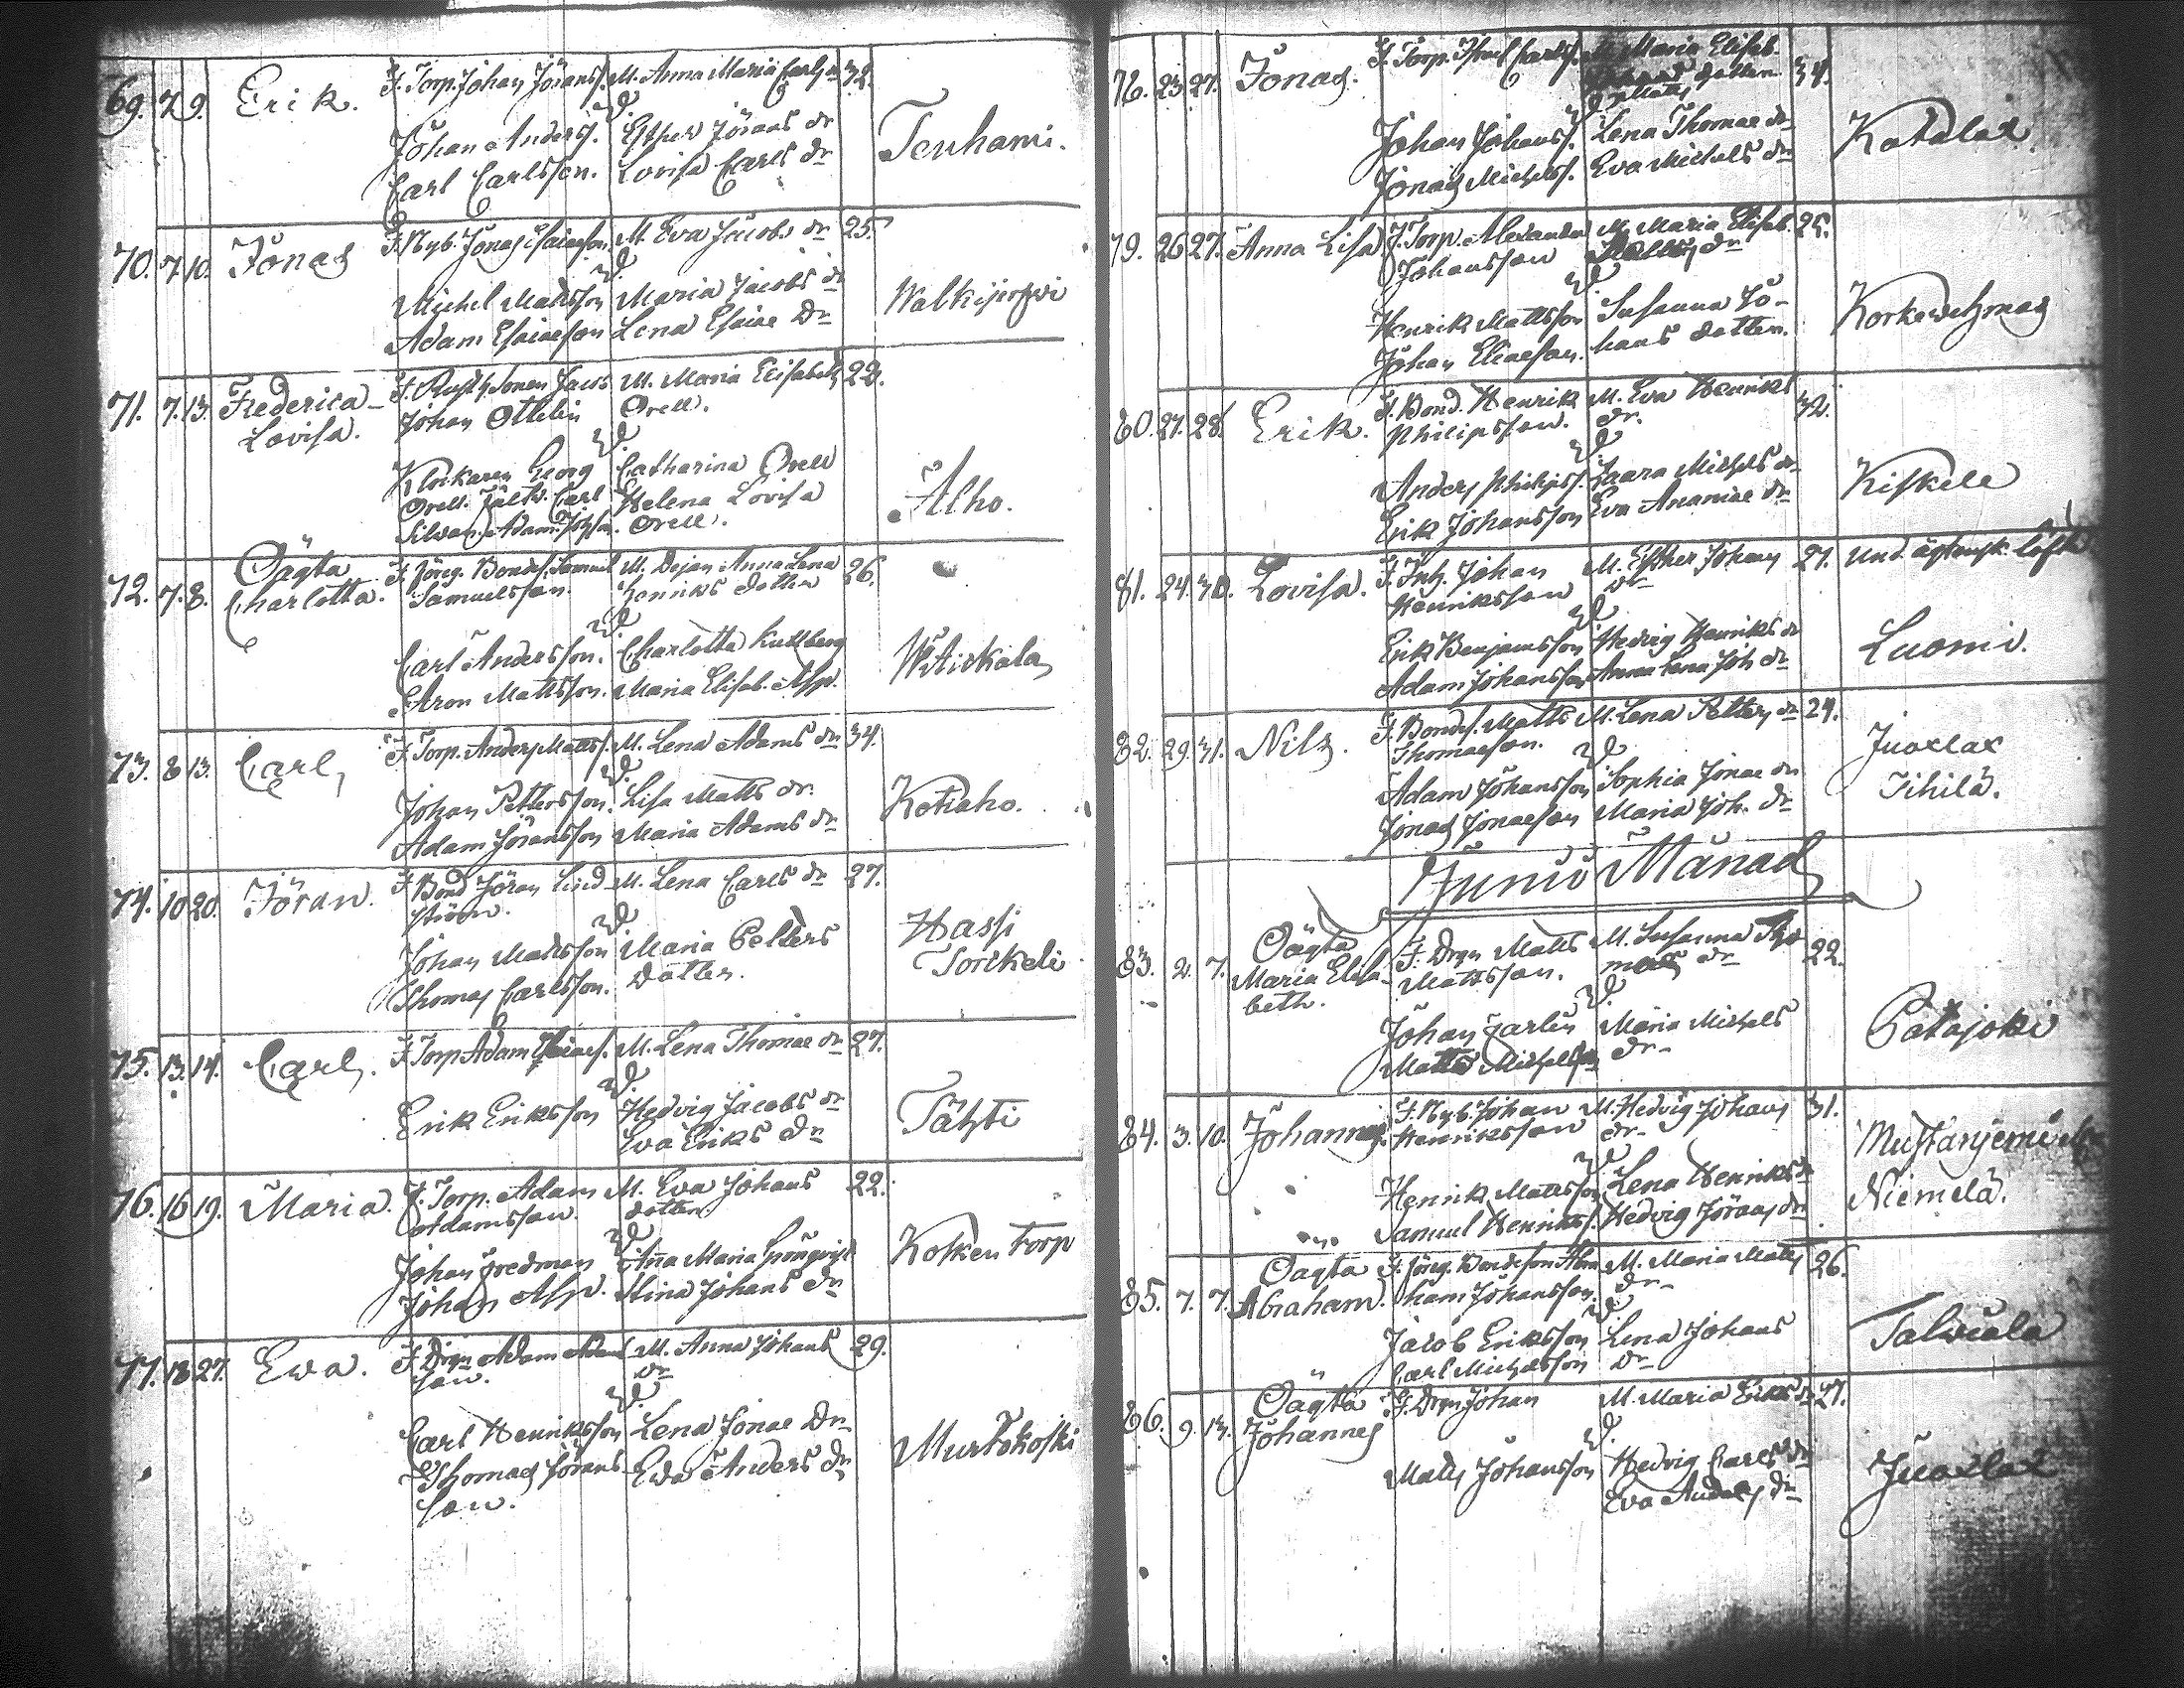 69. 7. 9. Erik. F. Torp. Johan Jöranss. M. Anna Maria Carls dr 32.
Johan Anderss. Esther Jörans dr
Carl Carlsson. Lovisa Carls dr
Tenhami.
70. 7. 10. Jonas F. Nyb. Jonas Esaiaeson M. Eva Jacobs dr 25.
Michel Mattsson Maria Jacobs dr
Adam Esaiaeson Lena Esaiae Dr
Walkijerfwi
71. 7. 13. Frederica F. Rusth. Sonen Jacob M. Maria Elisabeth 22.
Lovisa. Johan Ottelin Orell.
Klockaren Georg Catharina Orell
Orell. Fältv. Carl Helena Lovisa
Silvan. Adam Johsson. Orell.
Alho.
72. 7. 8. Oägta
Charlotta. F. Jöng. Bondes. Samuel M. Dejan Anna Lena 26.
Samuelsson. Henriks dotter
Carl Andersson. Charlotta Kullberg
Aron Mattsson. Maria Elisab. Asp.
73. 8. 13. Carl F. Torp. Anders Matts. M. Lena Adams dr 34.
Johan Pettersson. Lisa Matts dr.
Adam Jöransson Maria Adams dr
Kotiaho.
74. 10 20. Jöran. F. Bond Jöran Lind- M. Lena Carls dr 27.
ström.
Johan Mattsson Maria Petters
Thomas Carlsson. dotter.
Hassi
Torikeli
75. 13. 14. Carl. F. Torp Adam Esaiaes. M. Lena Thomae dr 27.
Erik Eriksson Hedvig Jacobs dr
Eva Eriks dr
Tähti
76. 16 19. Maria. F. Torp. Adam M. Eva Johans 22.
Adamsson. dotter
Johan Fredman Anna Maria
Johan Asp. Stina Johans dr
Kosken Torp
77. 18 27. Ewa. F. Drgn Adam Adams- M. Anna Johans 29.
son. dr
Carl Henriksson Lena Jonae Dr
Thomas Jörans- Eva Anders dr
son.
Murtokoski
23. 27. Jonas. F. Torp. Carls. M. Maria Elisab. 34.
dotter
Matts
Johan Johanss. Lena Thomae dr
Jonas Michelss. Eva Michels dr
Katalax
79. 26 27. Anna Lisa F. Torp. Alexander M. Maria Elisab. 25.
Johansson dr
Henrik Mattsson Susanna Jo-
Johan Eliaeson. hans dotter.
80. 27. 28. Erik. F. Bond. Henrik M. Eva Henriks 32.
Philipsson. dr.
Anders Philipss. Saara Michels dr
Erik Johansson Eva Ananiae dr
Kiskele
81. 24. 30. Lovisa. F. Inh. Johan M. Esther Johans 27. und. ägtensk. löfte
Henriksson dr
Erik Benjamsson Hedvig Henriks dr
Adam Johansson Anna Lena Joh dr
Luomi.
82. 29. 31. Nils. F. Bonds. Matts M. Lena Petters dr 24.
Thomaeson.
Adam Johansson Sophia Jonae dr
Jonas Jonaeson Maria Joh. dr
Juoxlax
Tihilä.
Junii Månad
83. 2. 7. Oägta
Maria Elisa- F. Drgn Matts M. Susanna Tho 22.
beth. Mattsson. mas dr
Johan Jarlin Maria Michels
Matts Michelsson dr
Patajoki
84. 3. 10. Johannes F. Nyb. Johan M. Hedvig Johans 31.
Henriksson dr.
Henrik Mattsson Lena Henriks
Samuel Henrikss. Hedvig Jörans dr
Niemelä.
85. 7. 7. Oägta
Abraham. F. Jöng. Bondeson Abra M. Maria Matts 26.
ham Johansson. dr
Jacob Eriksson Lena Johans
Carl Michelsson dr
Talwiala
86. 9. 13. Oägta
Johannes F. Drgn Johan M. Maria Eriks dr 27.
Matts Johansson Hedvig Carls dr
Eva Anders dr
Juoxlax